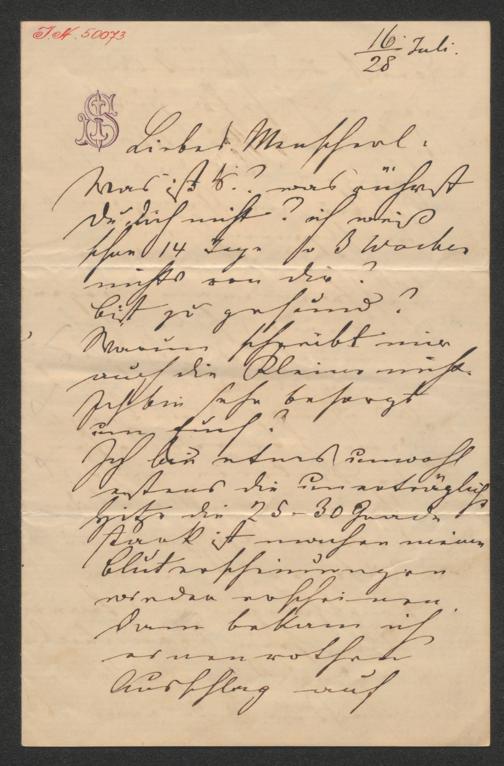 I.N. 50073
16./28 Juli.
Liebes Menscherl.
Was ist S.? was rührst
Du dich nicht? ich weiß
schon 14 Tage so 3 Wochen
nichts von dir?
bist gesund?
Warum schreibt mir
auch die Kleine nicht.
Ich bin sehr besorgt
um Euch?
Ich bin etwas unwohl
erstens die unerträgliche
Hitze die 25-30 Grade
stark ist machen meine
Bluterscheinungen
wieder erscheinen.
Dann bekam ich
einen rothen
Ausschlag auf